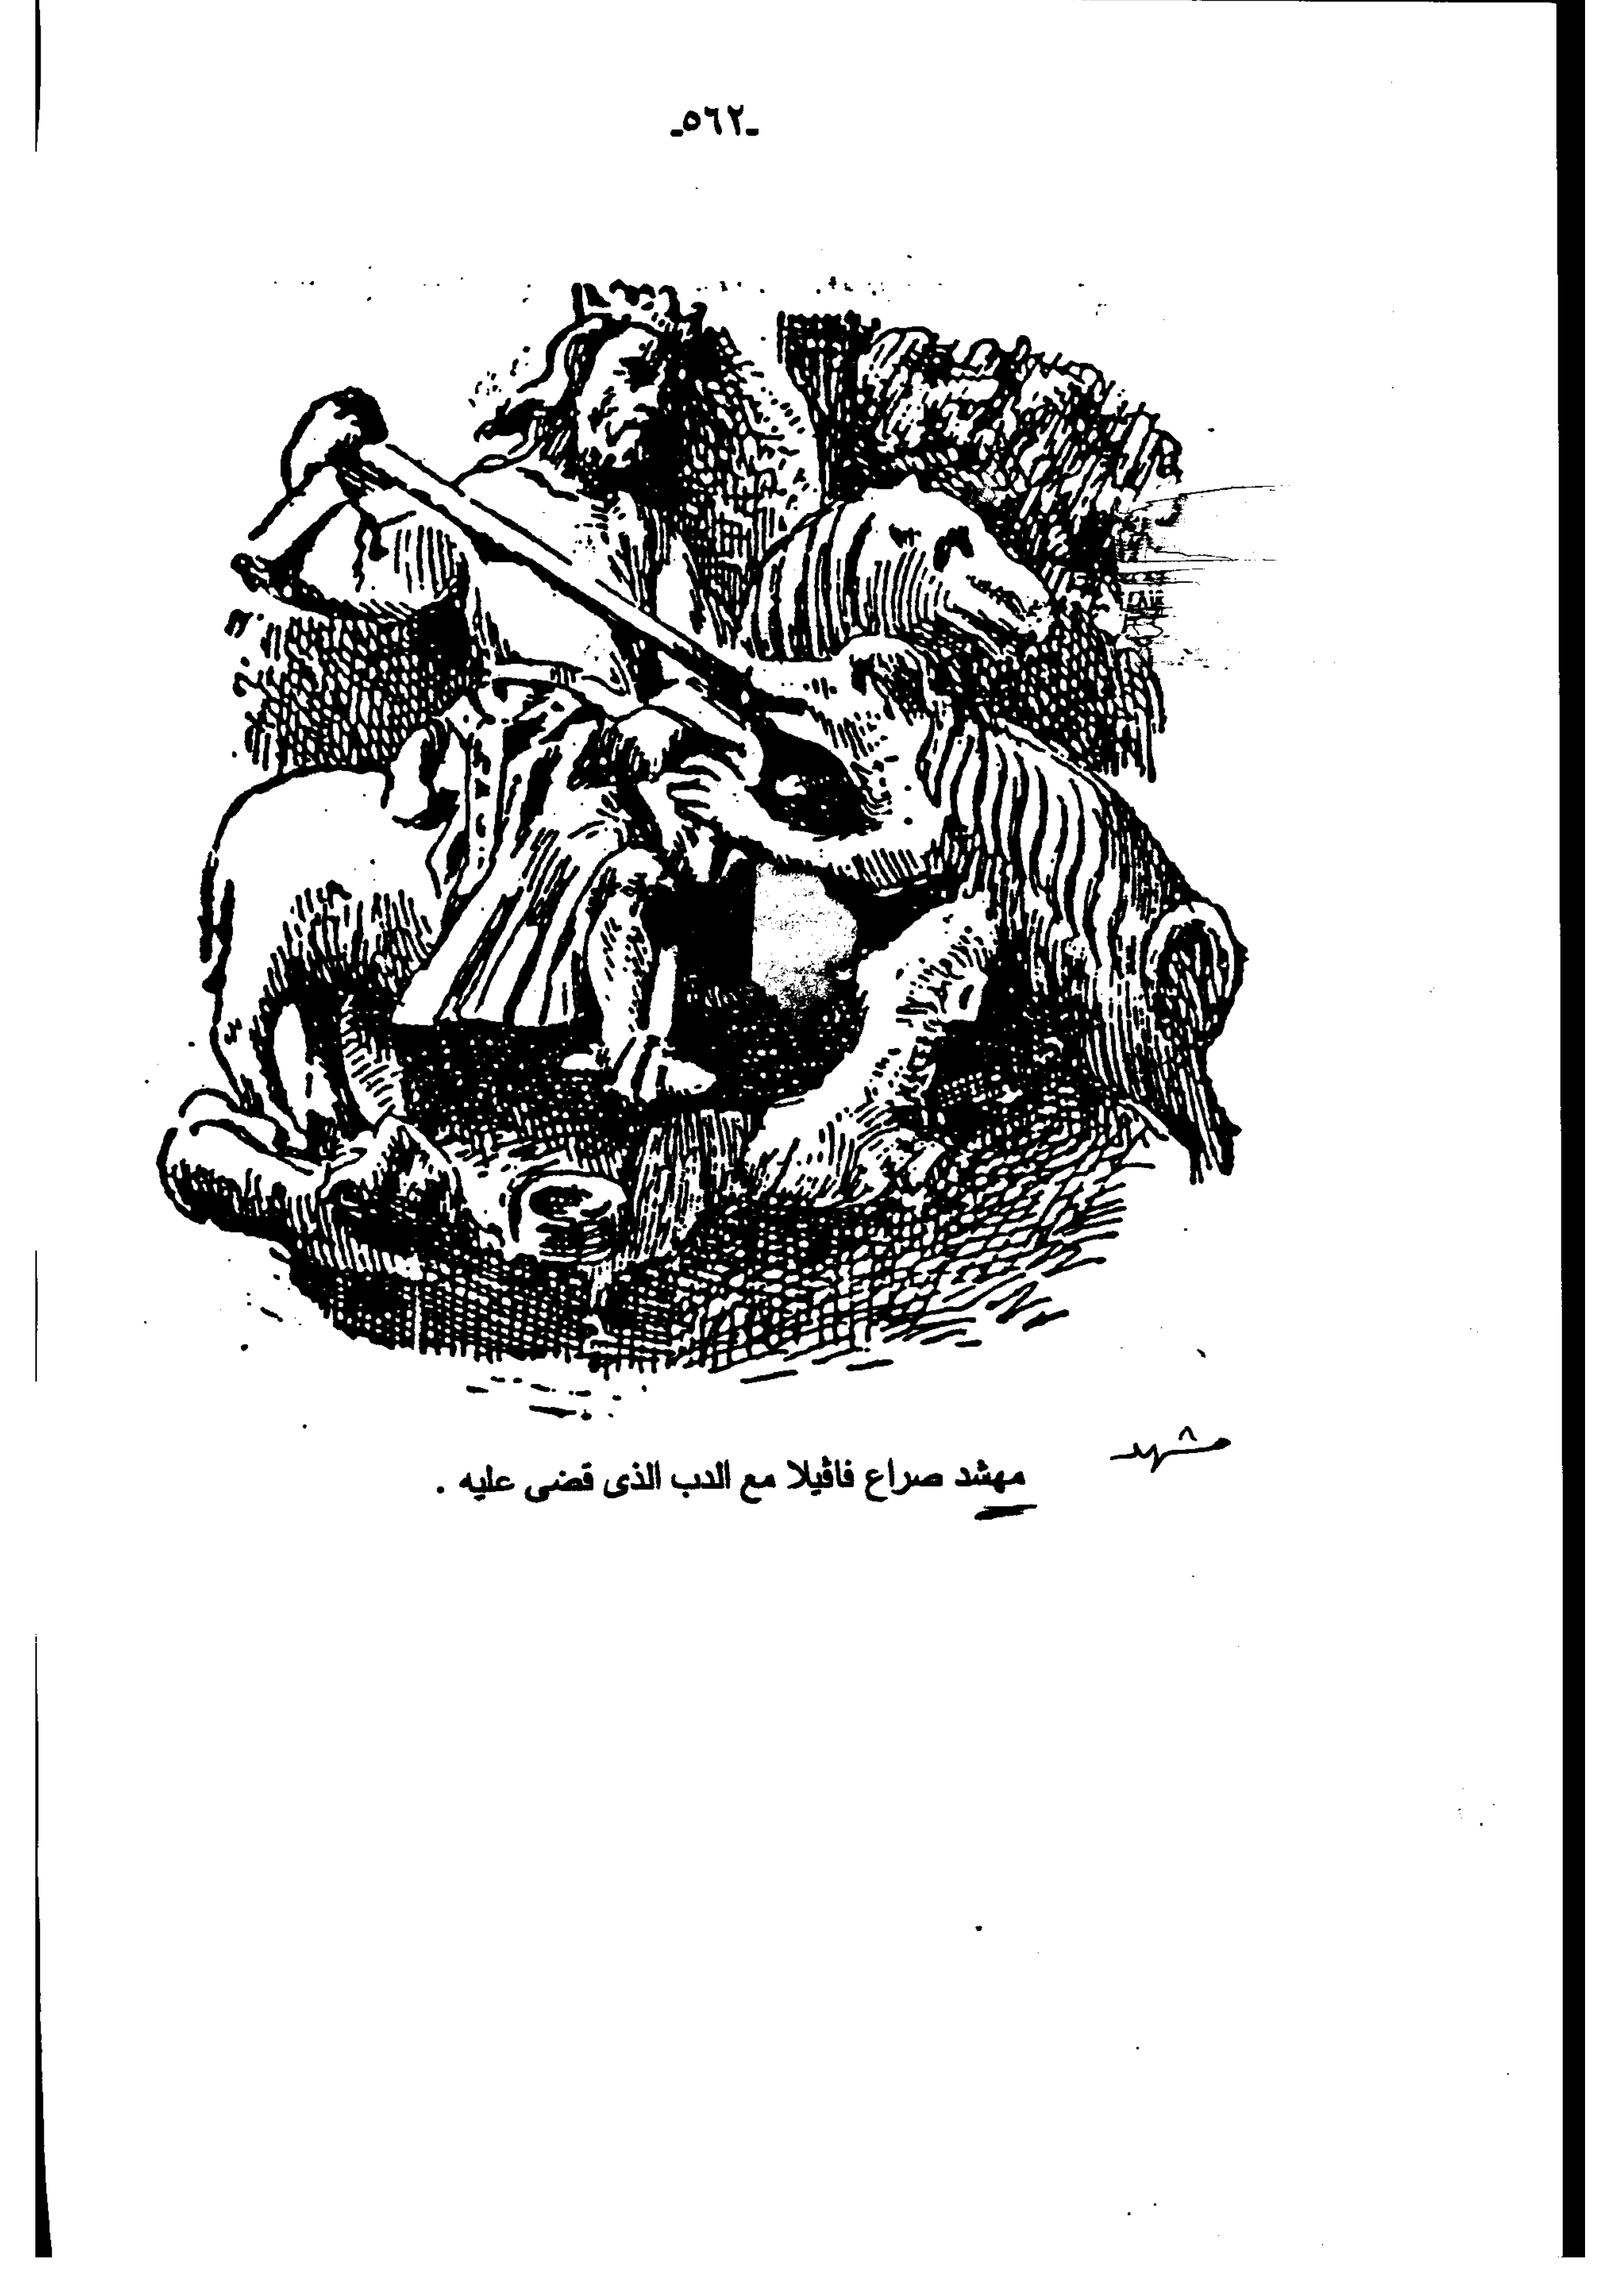 -٥٦٢-
مشهد
مهشد صراع فاڤيلا مع الدب الذى قضى عليه .